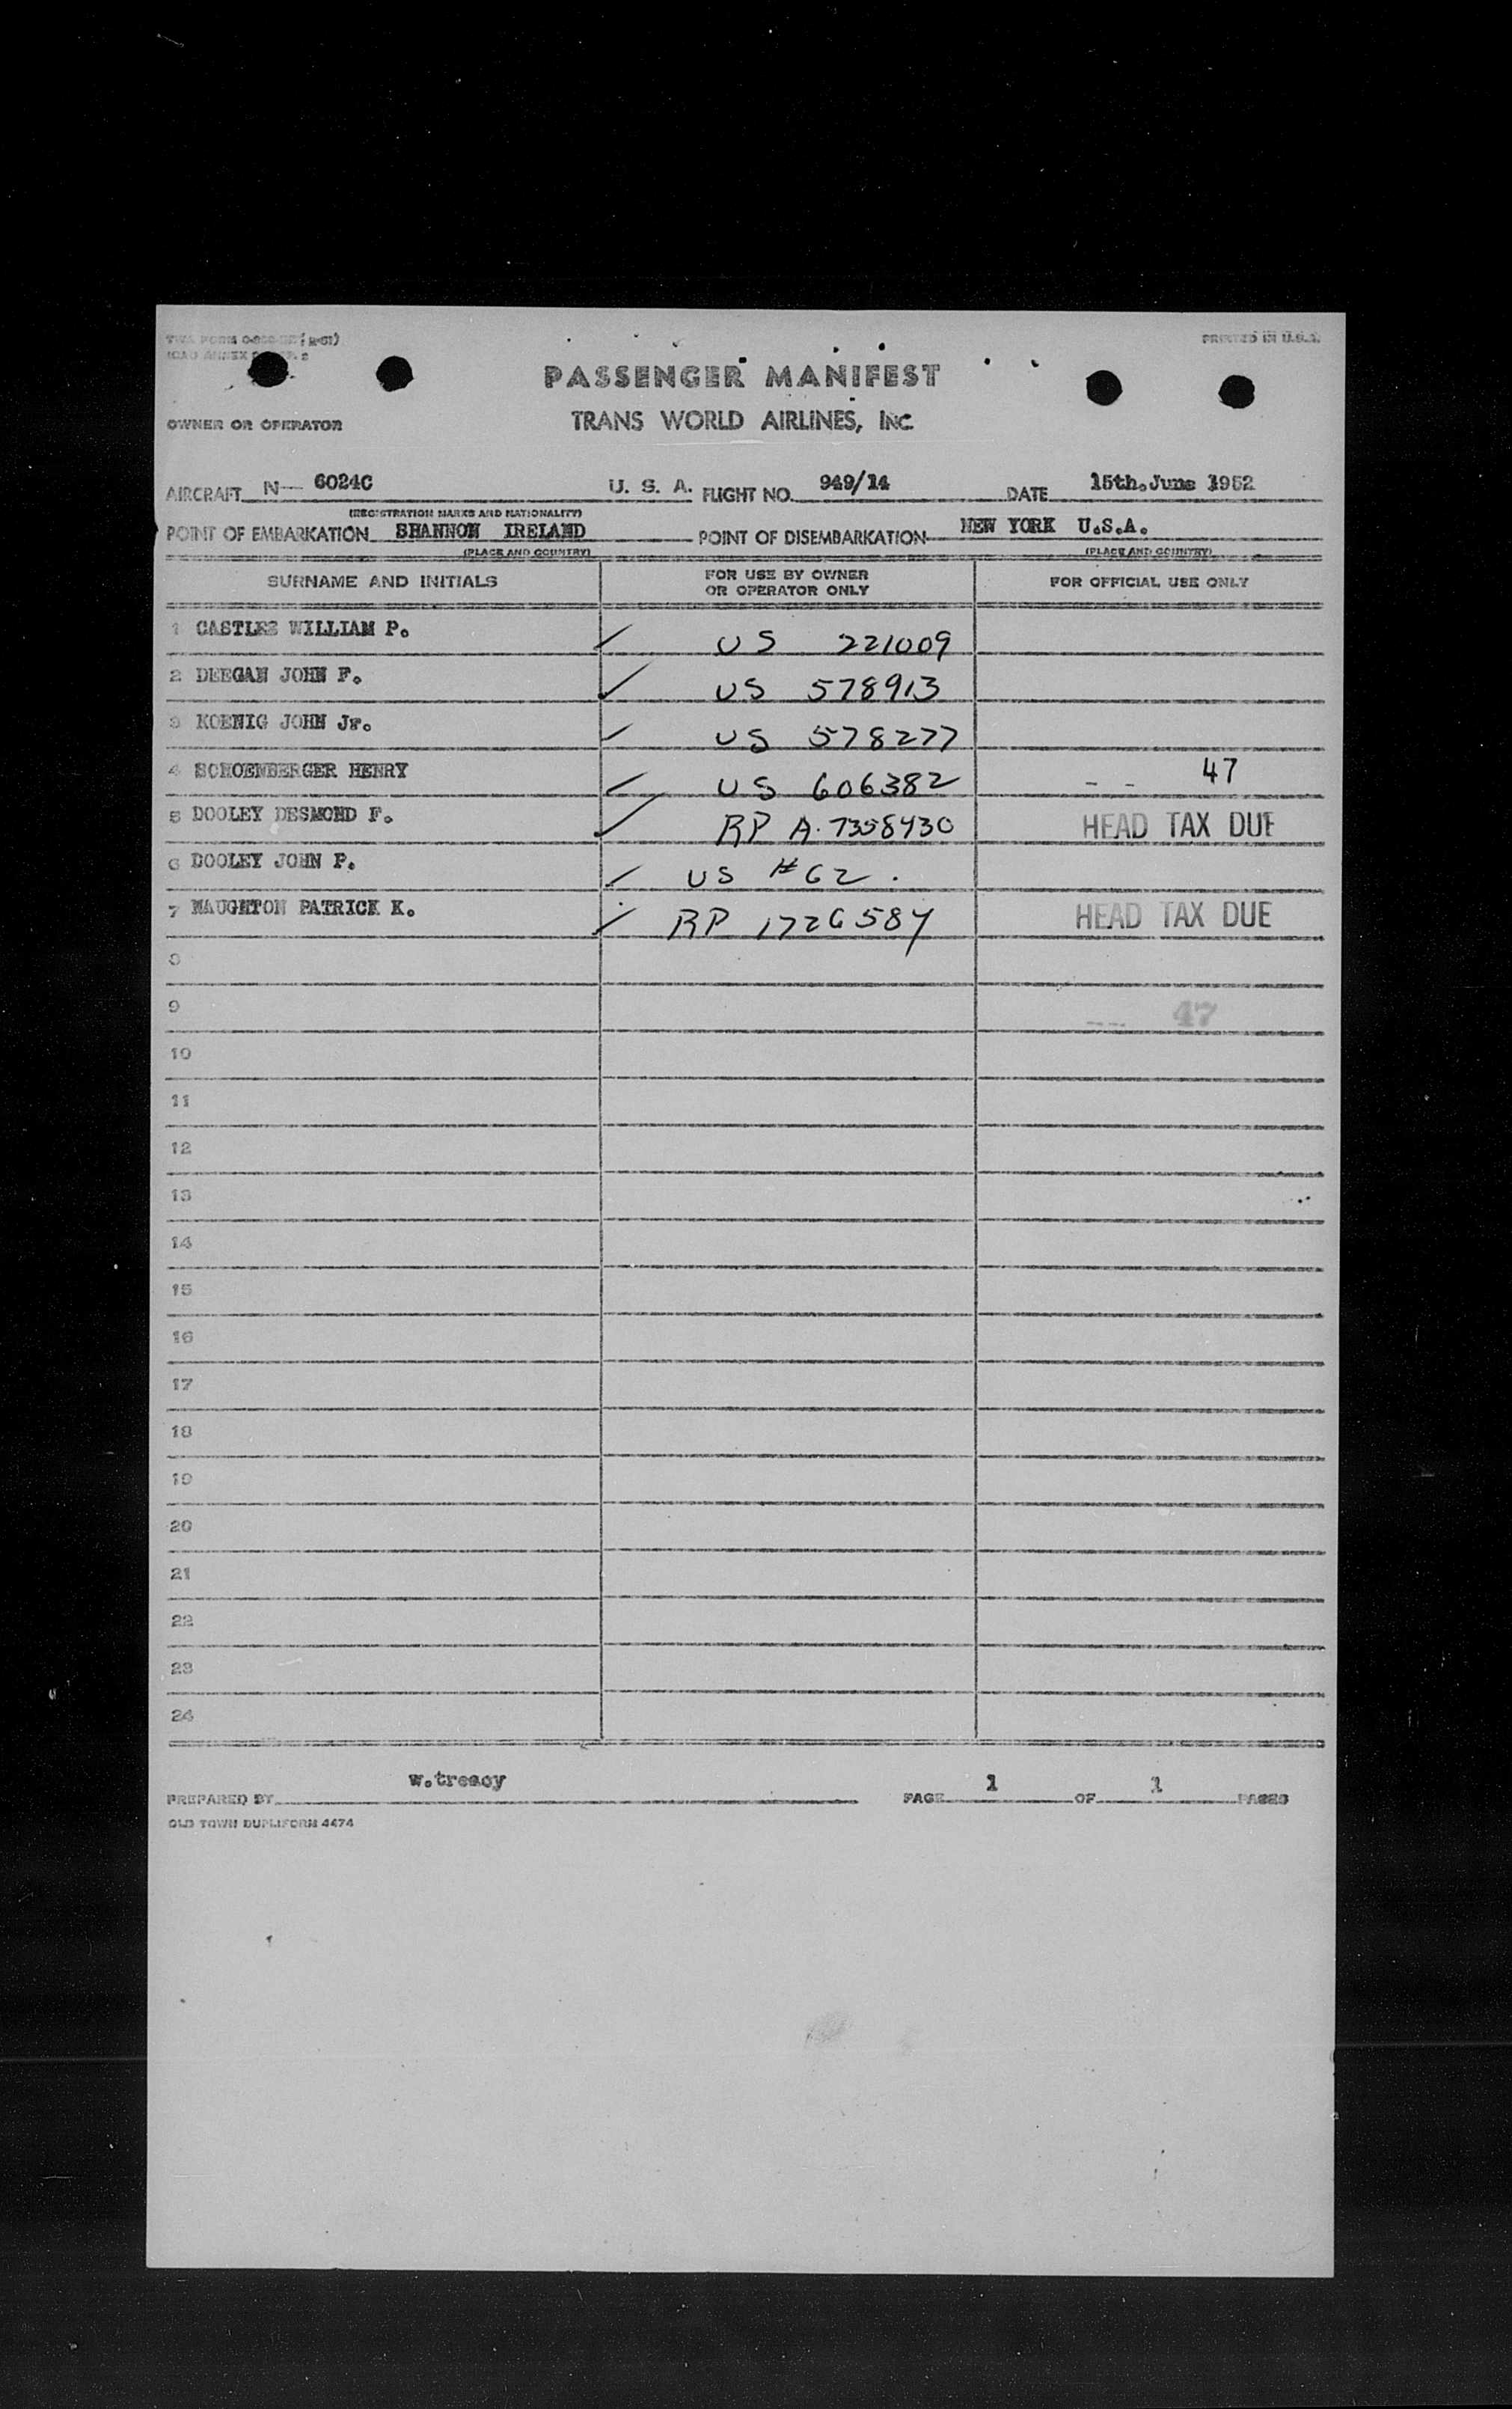 PRINTED IN U.S.A.
PASSENGER MANIFEST
OWNER OR OPERATOR TRANS WORLD AIRLINES, INC
AIRCRAFT N 6024C U. S. A. FLIGHT NO. 949/14 DATE 15th.June 1952
(REGISTRATION MARKS AND NATIONALITY)
POINT OF EMBARKATION SHANNON IRELAND POINT OF DISEMBARKATION NEW YORK U.S.A.
(PLACE AND COUNTRY) (PLACE AND COUNTRY)
SURNAME AND INITIALS FOR USE BY OWNER OR OPERATOR ONLY FOR OFFICIAL USE ONLY
1 CASTLES WILLIAM P. ✓ US 221009
2 DEEGAN JOHN F. ✓ US 578913
3 KOENIG JOHN Jr. ✓ US 578277
4 SCHOENBERGER HENRY ✓ US 606382 -- 47
5 DOOLEY DESMOND F. ✓ RP A.7358430 HEAD TAX DUE
6 DOOLEY JOHN P. ✓ US #62.
7 NAUGHTON PATRICK K. ✓ RP 1726584 HEAD TAX DUE
8
9 -- 47
10
11
12
13
14
15
16
17
18
19
20
21
22
23
24
PREPARED BY w.treacy PAGE 1 OF 1 PAGES
OLD TOWN DUPLIFORM 4474